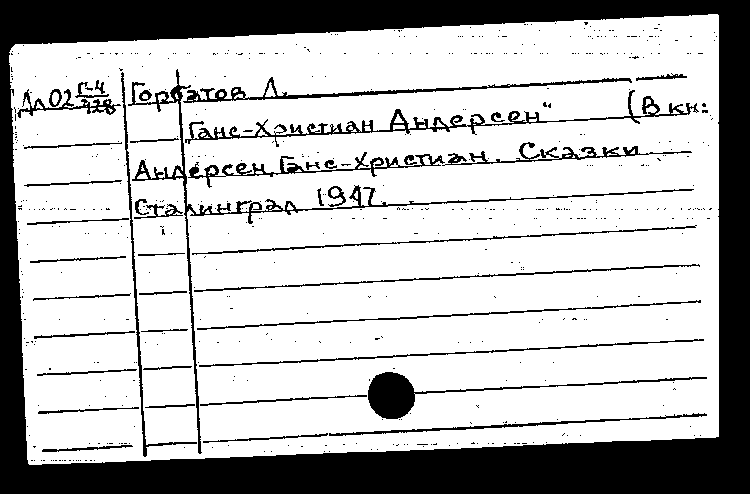 Дл02 Г-4/328 Горбатов Л.
„Ганс-Христиан Андерсен“ (В кн:
Андерсен, Ганс-Христиан. Сказки
Сталинград 1947.